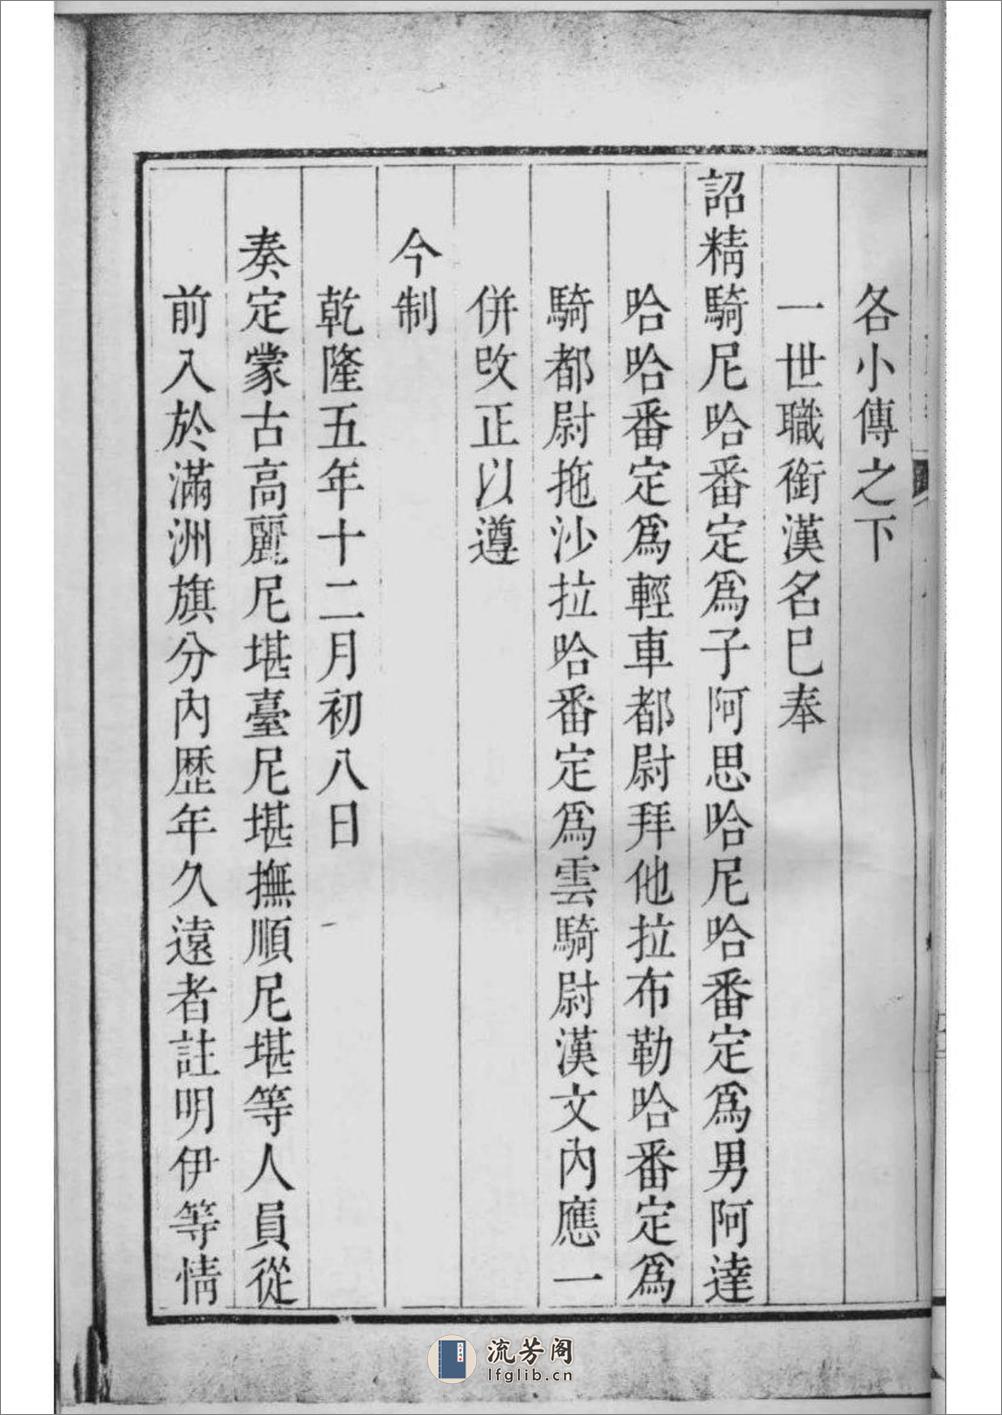 各小傳之下
一世職銜漢名已奉
詔精騎尼哈番定爲子阿思哈尼哈番定爲男阿達
哈哈番定爲輕車都尉拜他拉布勒哈番定爲
騎都尉拖沙拉哈番定爲雲騎尉漢文內應一
併改正以遵
今制
乾隆五年十二月初八日
奏定蒙古高麗尼堪臺尼堪撫順尼堪等人員從
前入於滿洲旗分內歷年久遠者註明伊等情
流芳阁
lfglib.cn